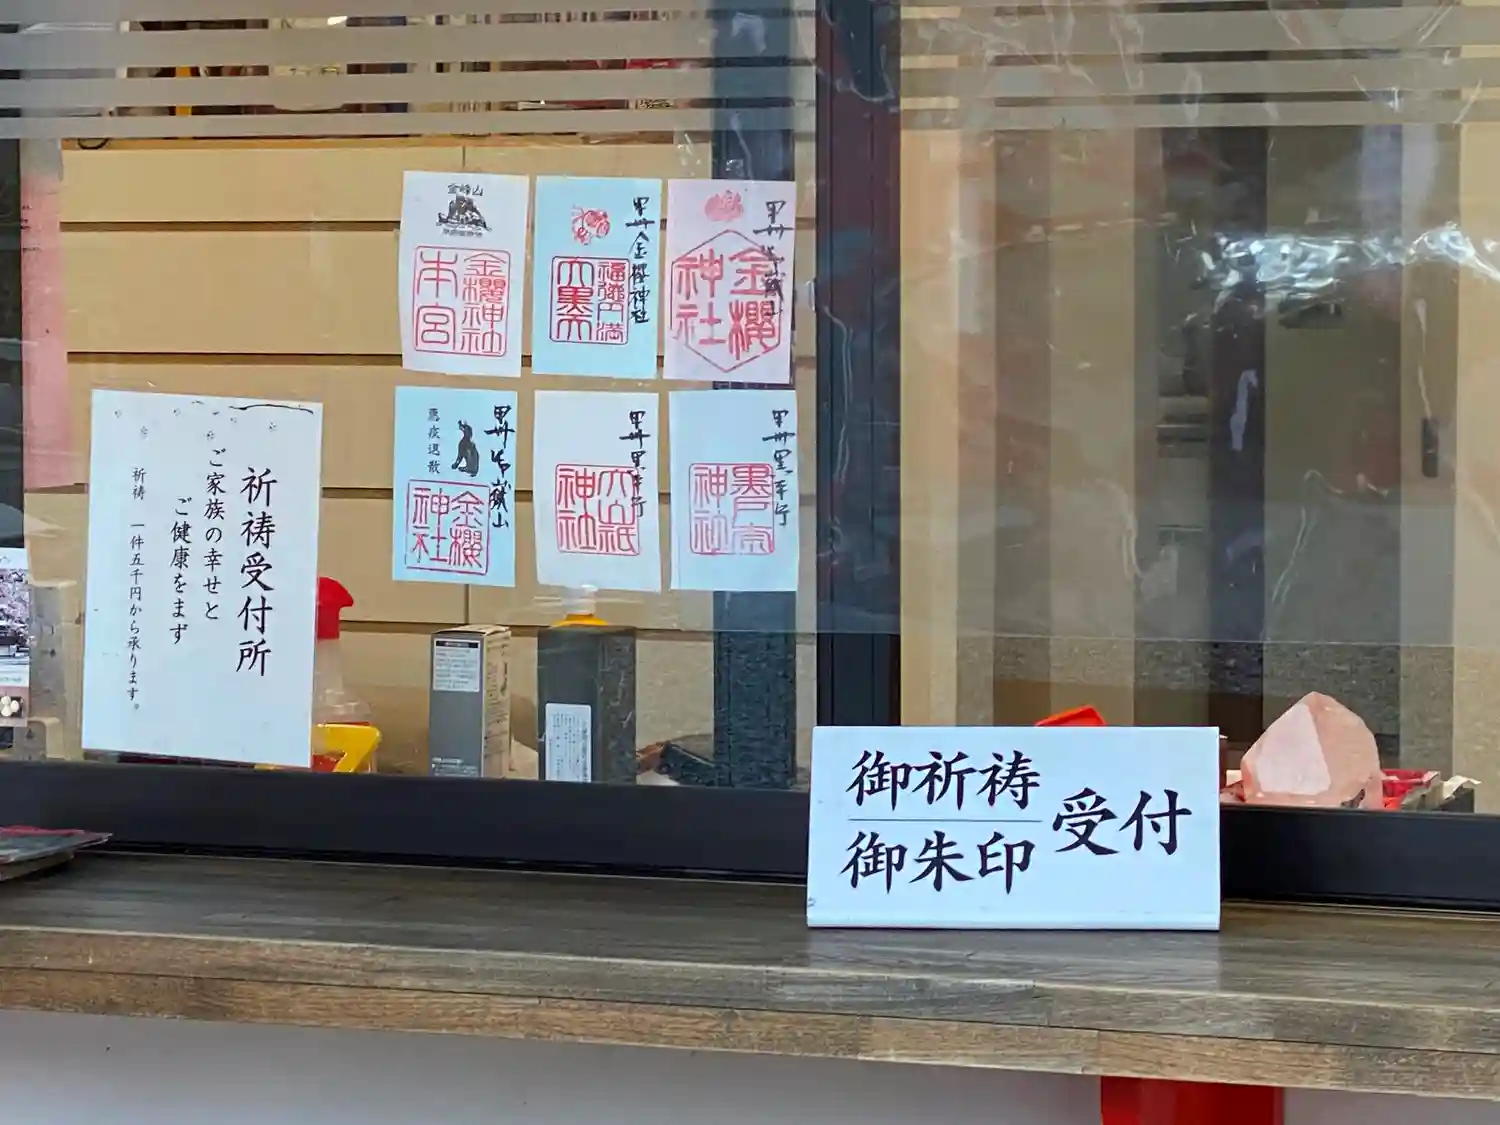 祈祷受付所
ご家族の幸せと
ご健康をまず
祈祷 一件五千円から承ります。
金峰山
金櫻神社
本宮
甲州金櫻神社
福徳円満
大黒天
甲州
金櫻
神社
甲州
悪疫退散
金櫻
神社
甲州
大山祇
神社
甲州黒平
神社
御祈祷
御朱印
受付